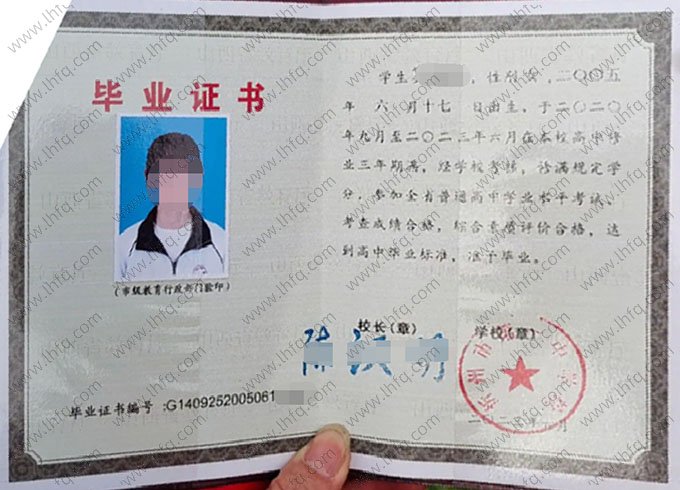 毕业证书
(市级教育行政部门验印)
毕业证书编号:G1409252005061
学生 , 性别男, 二〇〇五
年 六 月十七 日出生, 于二〇二〇
年九月至二〇二三年六月在本校高中修
业三年期满, 经学校考核, 修满规定学
分, 参加全省普通高中学业水平考试、
考查成绩合格, 综合素质评价合格, 达
到高中毕业标准, 准予毕业。
校长(章)
学校(章)
www.lhfq.com